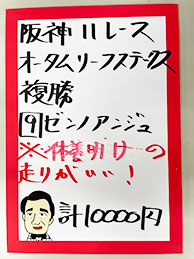 阪神11レース
オータムリーフステークス
複勝
9ゼンノアンジュ
※休養明けの
走りがいい！
計10000円